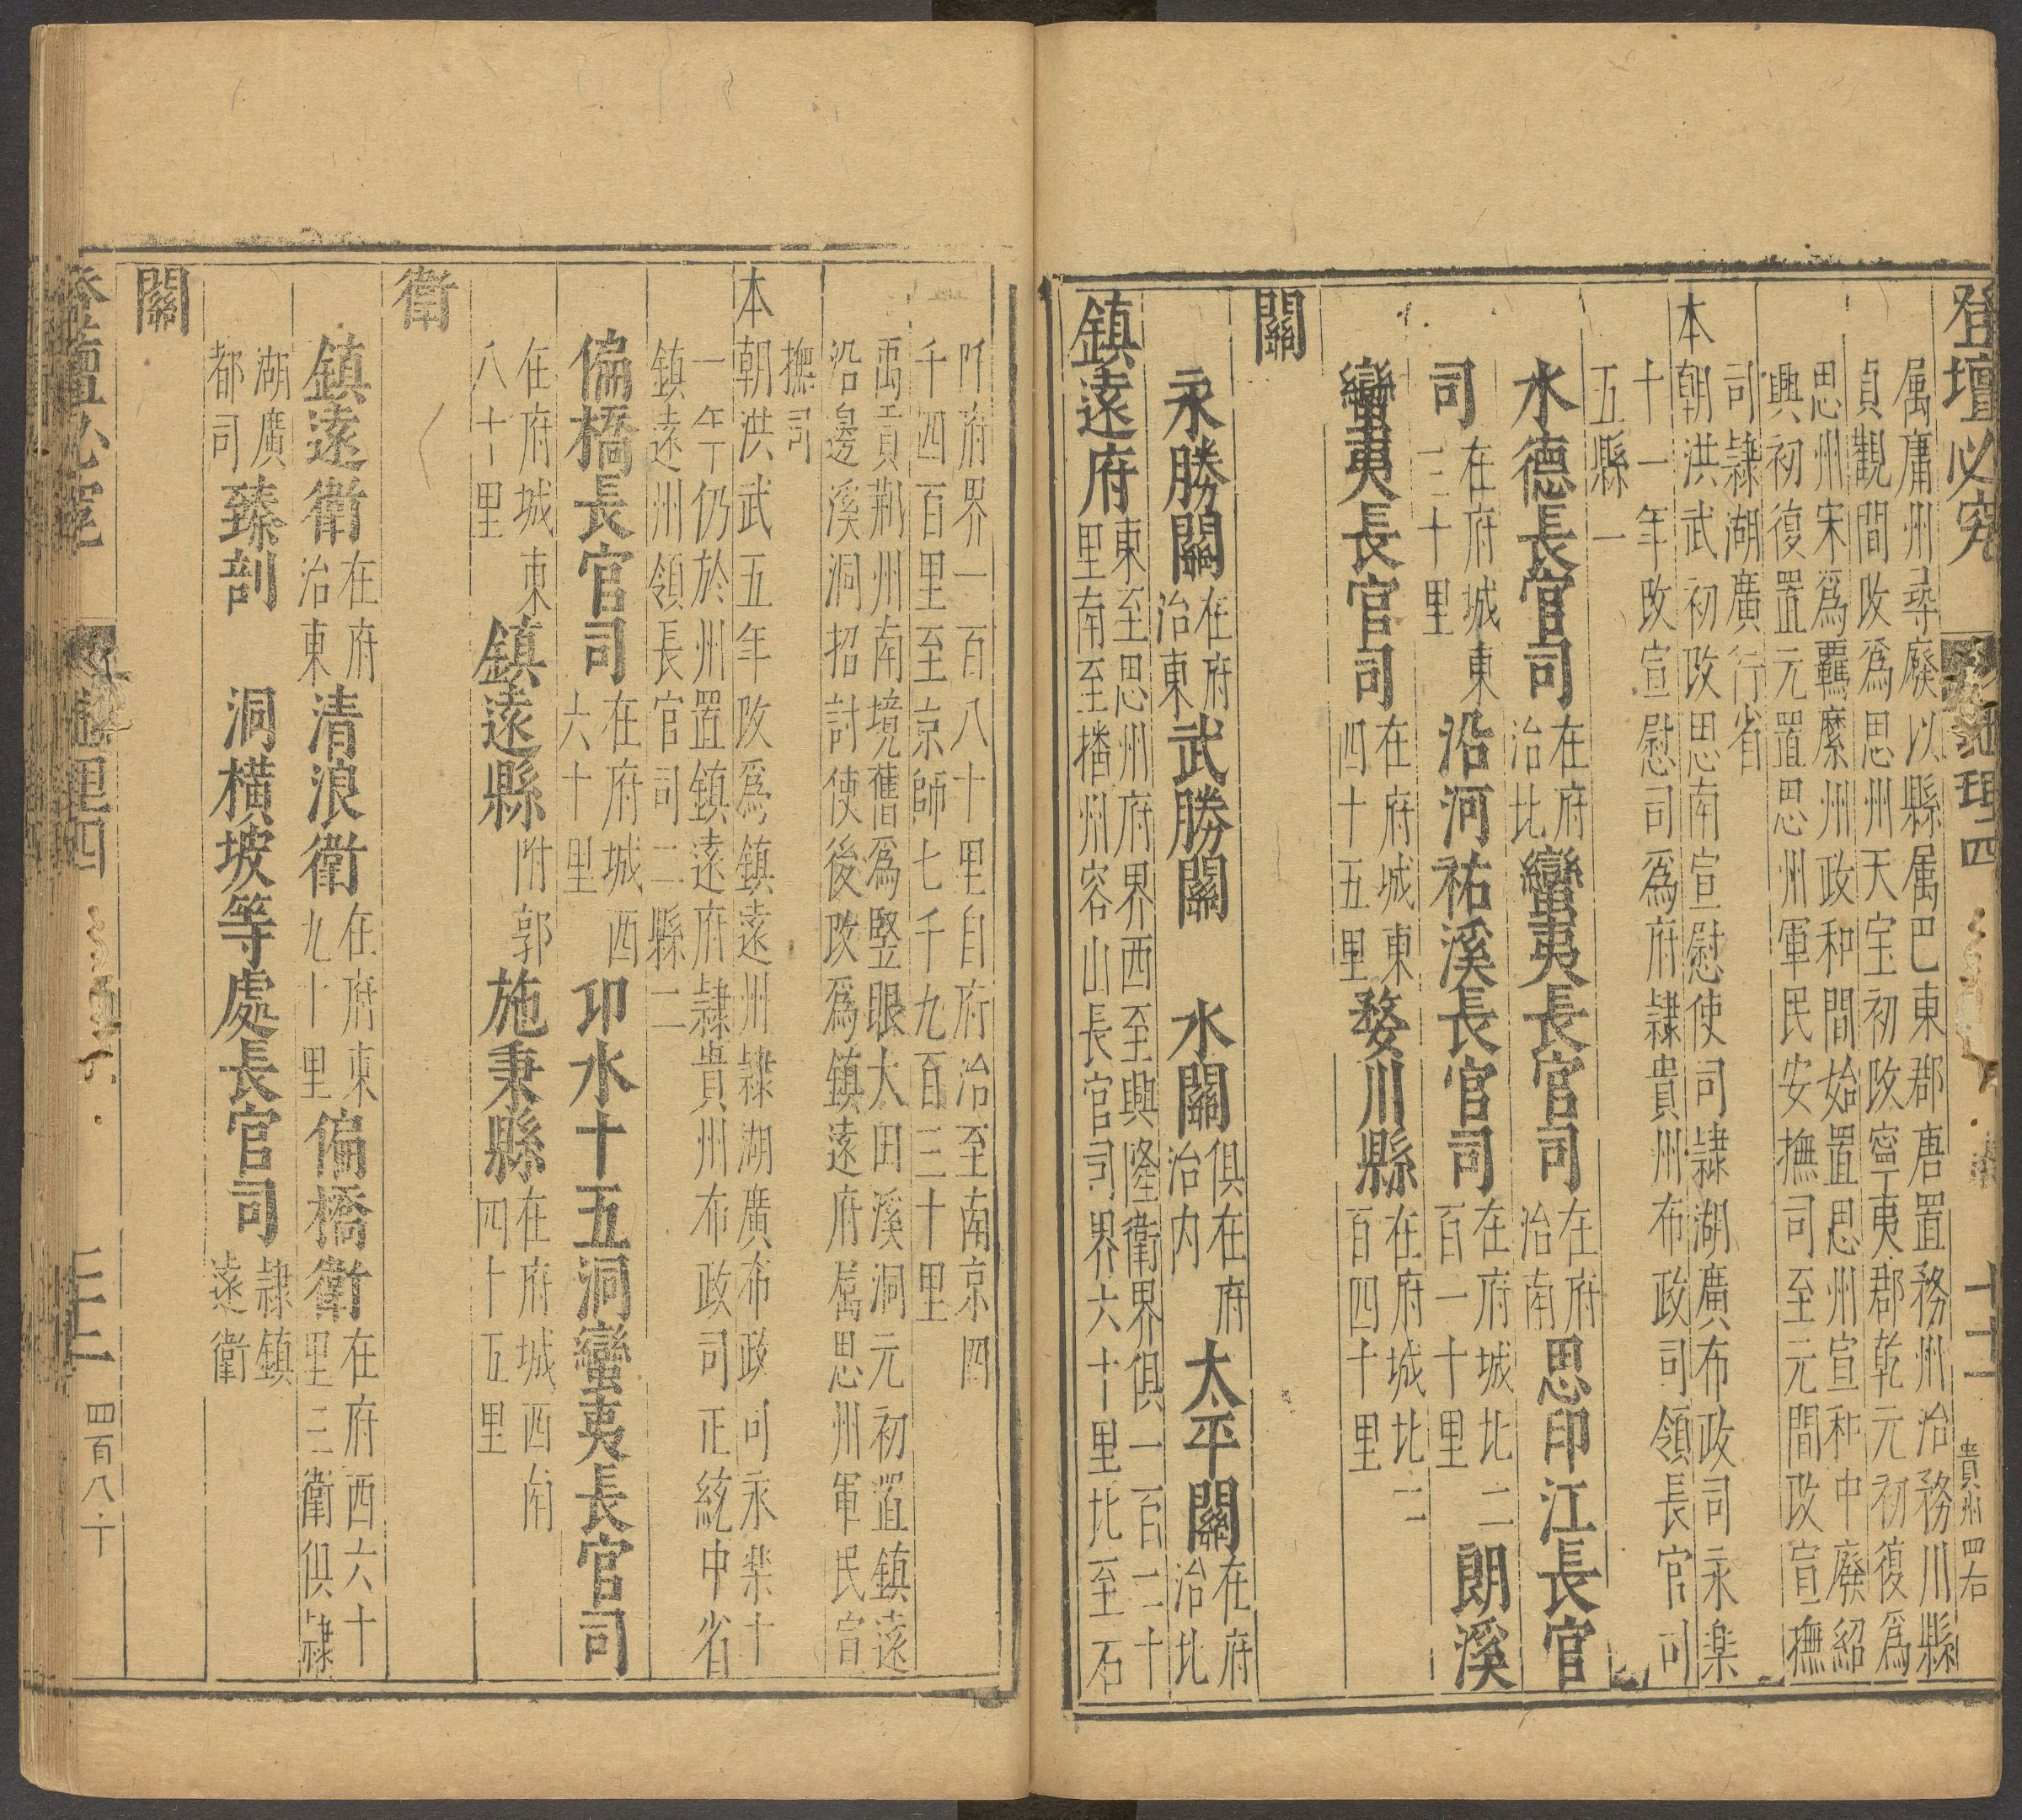 登壇必究
理四
十一
貴州 四右
属庸州尋廢以縣属巴東郡唐置務州治務川縣
貞觀間改爲思州天宝初改寧夷郡乾元初復爲
思州宋爲羈縻州政和間始置思州宣和中廢紹
興初復置元置思州軍民安撫司至元間改宣撫
司隷湖廣行省
本朝洪武初改思南宣慰使司隷湖廣布政司永樂
十一年改宣慰司爲府隷貴州布政司領長官司
五縣一
水德長官司在府治北蠻夷長官司在府治南思印江長官
司在府城東三十里沿河祐溪長官司在府城北二百一十里朗溪
蠻夷長官司在府城東四十五里婺川縣在府城北二百四十里
關
永勝關在府治東武勝關 水關俱在府治内太平關在府治北
鎮遠府東至思州府界西至興隆衛界俱一百二十里南至播州容山長官司界六十里北至石
阡府界一百八十里自府治至南京四
千四百里至京師七千九百三十里
禹貢荆州南境舊爲竪眼大田溪洞元初置鎮遠
沿邊溪洞招討使後改爲鎮遠府属思州軍民宣
撫司
本朝洪武五年改爲鎮遠州隷湖廣布政司永樂十
一年仍於州置鎮遠府隷貴州布政司正統中省
鎮遠州領長官司二縣二
偏橋長官司在府城西六十里 卭水十五洞蠻夷長官司
在府城東八十里鎮遠縣附郭施秉縣在府城西南四十五里
衛
鎮遠衛在府治東清浪衛在府東九十里偏橋衛在府西六十里三衛俱隷
湖廣都司臻剖 洞橫坡等處長官司隷鎮遠衛
關
四
四百八十